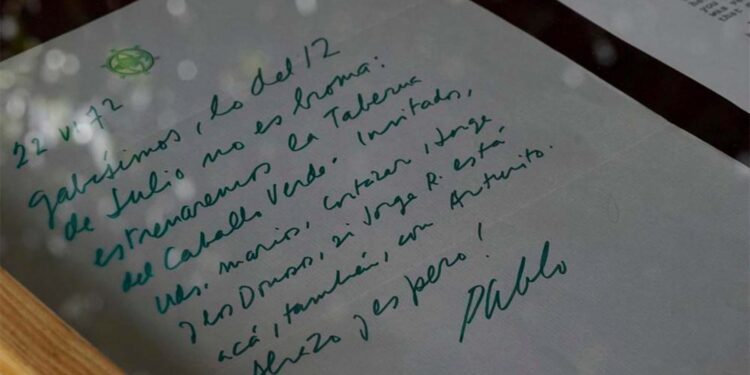 22 VI 72
gabísimos, lo del 12
de Julio no es broma:
estrenaremos la Taberna
del Caballo Verde. Invitados,
Uds. marios, Cortazar, Jorge
y los Donoso, si Jorge R. está
acá, también, con Arturito.
Abrazo y espero!
Pablo